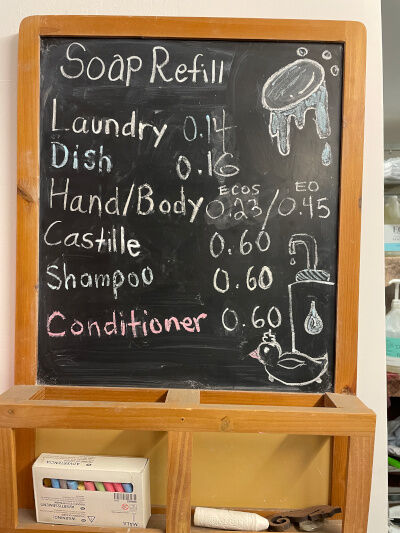 Soap Refill
Laundry 0.14
Dish 0.16
ECOS EO
Hand/Body 0.23/0.45
Castille 0.60
Shampoo 0.60
Conditioner 0.60
MÅLA